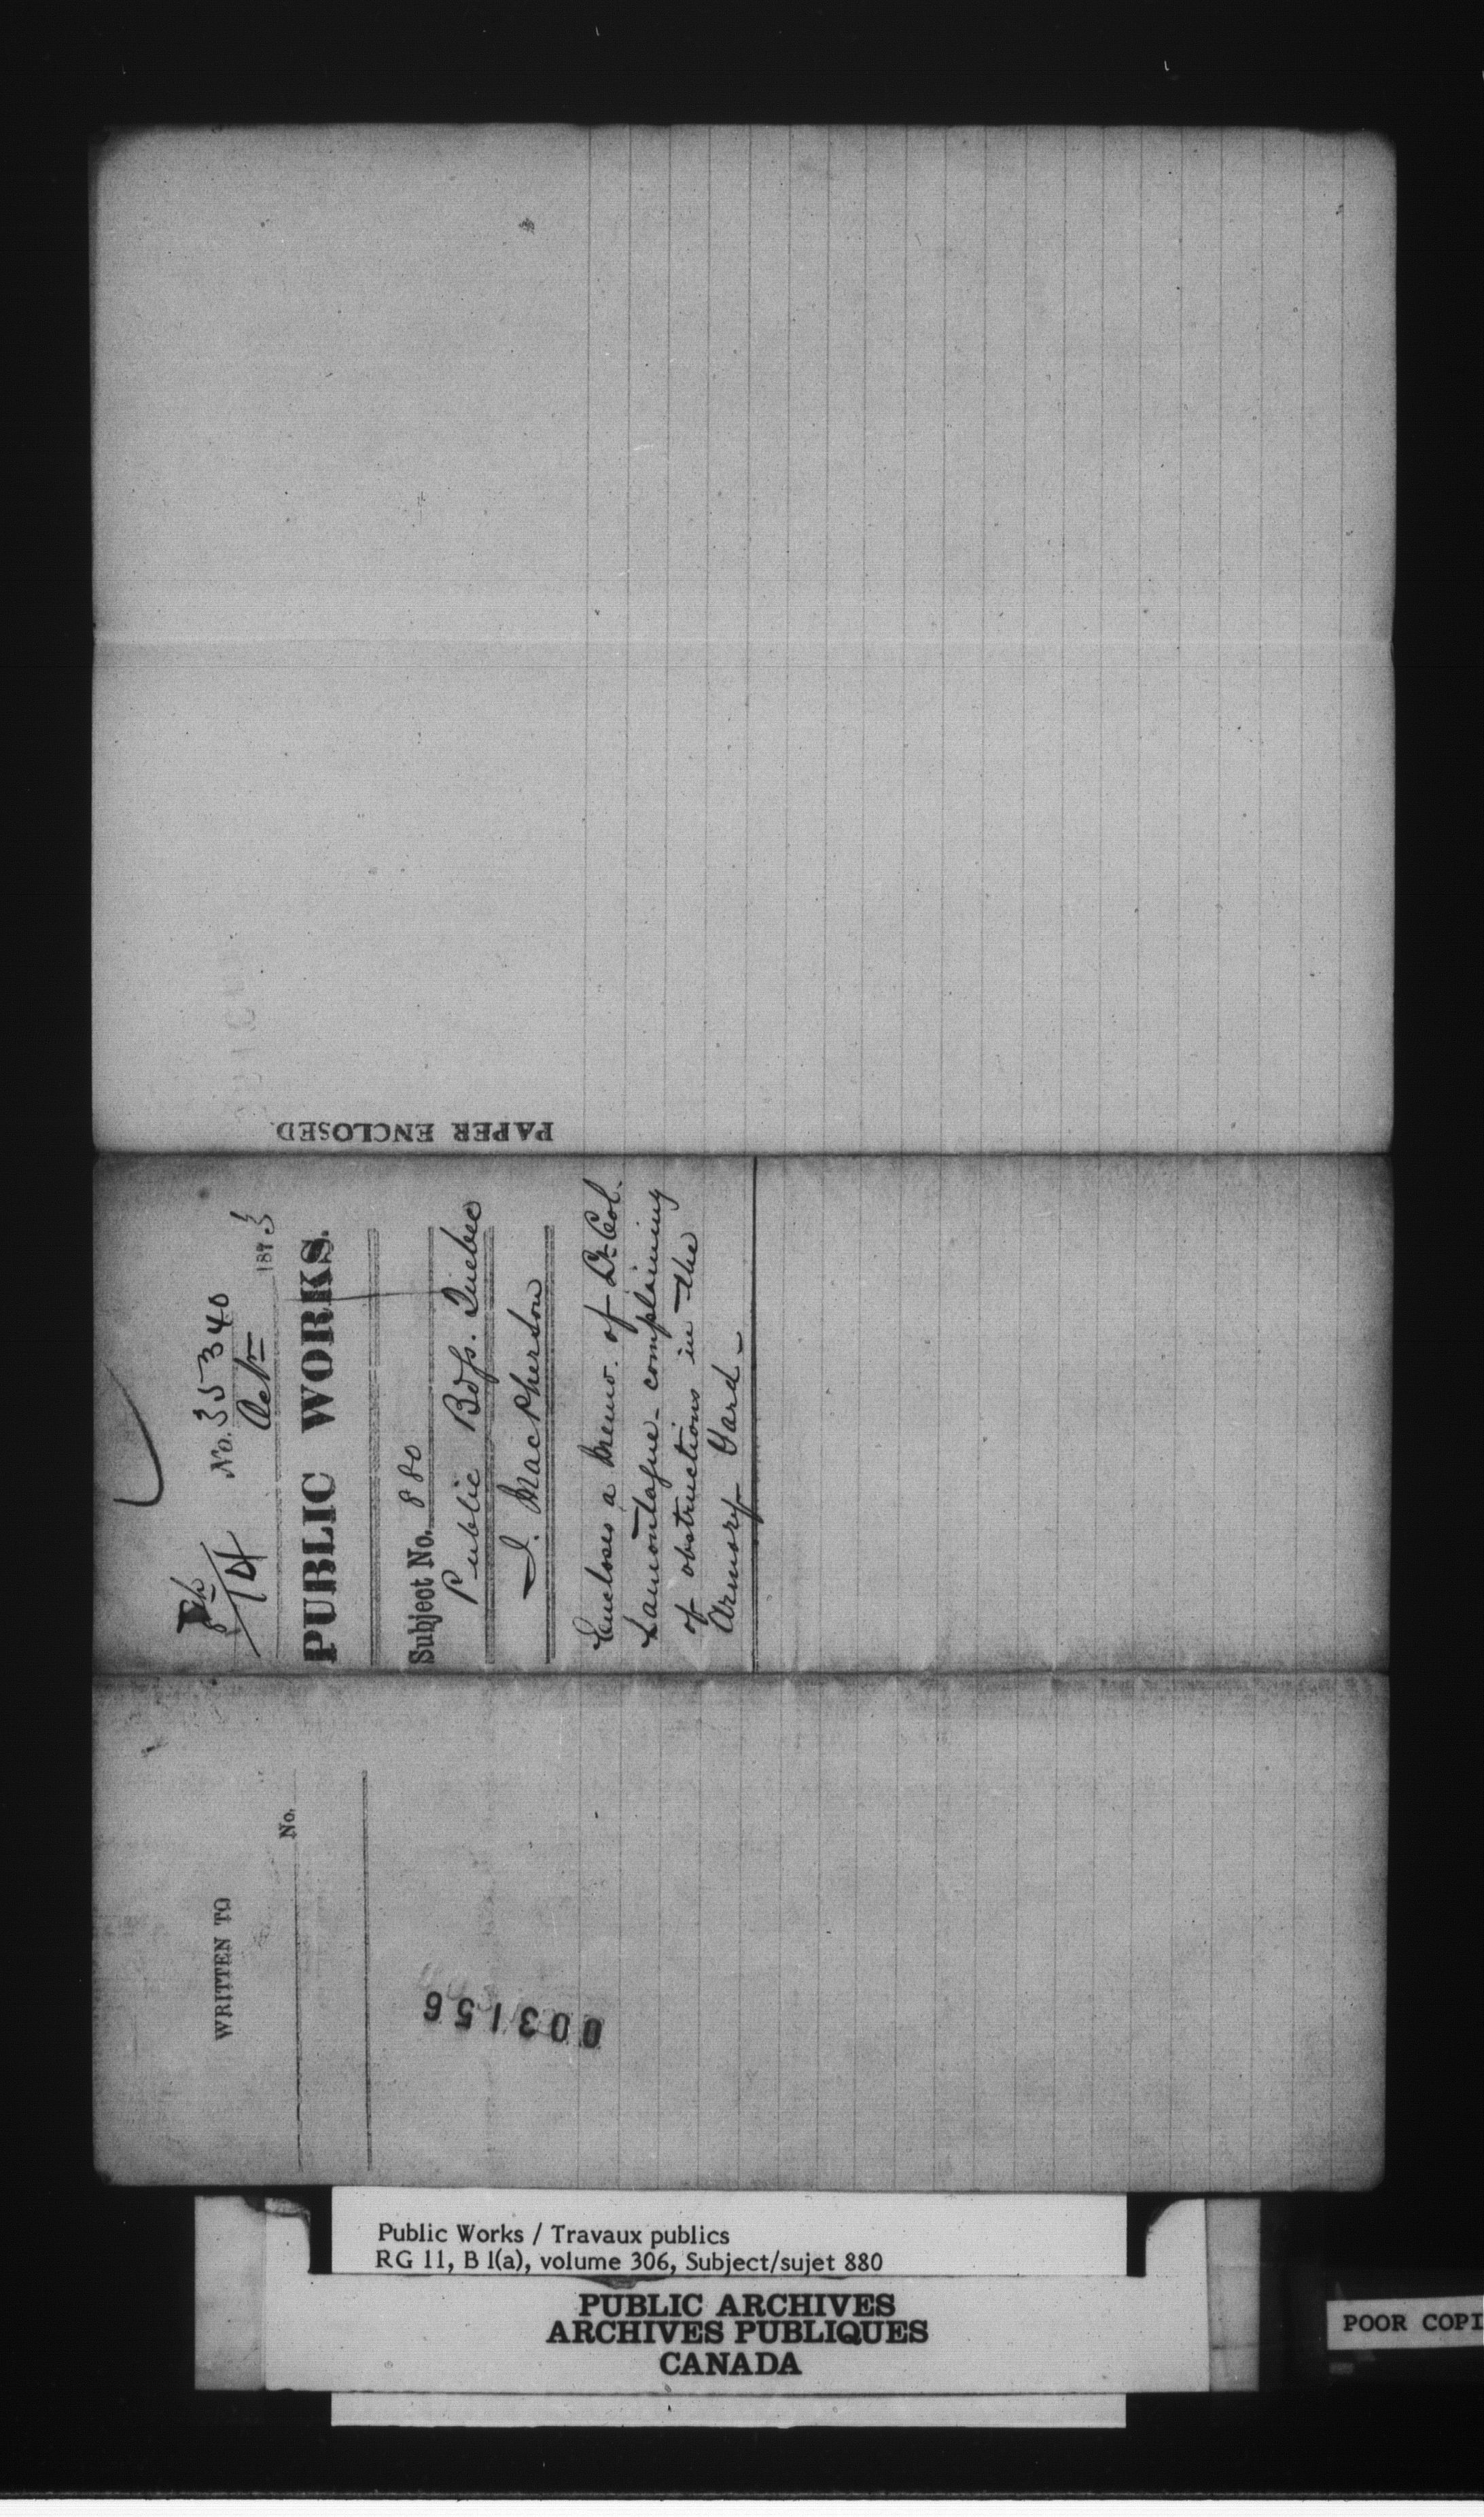 PAPER ENCLOSED
No. 35340
14
1873
PUBLIC WORKS.
Subject No. 880
Public Bdgs. Quebec
D. MacPherson
Encloses a Memo. of Lt. Col.
Lamontagne - complaining
of obstructions in the
Armory Yard -
WRITTEN TO
No.
003156
Public Works / Travaux publics
RG 11, B 1(a), volume 306, Subject/sujet 880
PUBLIC ARCHIVES
ARCHIVES PUBLIQUES
CANADA
POOR COPI